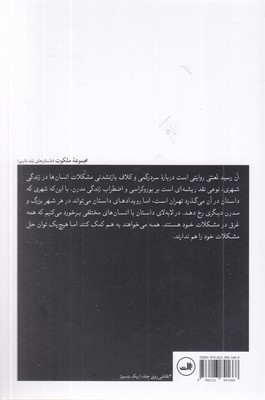 مجموعهٔ ملکوت (داستان‌های بلند فارسی)
آن رسید لعنتی روایتی است دربارهٔ سردرگمی و کلاف بازنشدنی مشکلات انسان‌ها در زندگی
شهری، نوعی نقد ریشه‌ای است بر بوروکراسی و اضطراب زندگی مدرن. با این‌که شهری که
داستان در آن می‌گذرد تهران است، اما رویدادهای داستان می‌تواند در هر شهر بزرگ و
مدرن دیگری رخ دهد. در لابه‌لای داستان با انسان‌های مختلفی برخورد می‌کنیم که همه
غرق در مشکلات خود هستند. همه می‌خواهند به هم کمک کنند اما هیچ‌یک توان حل
مشکلات خود را هم ندارند.
* نقاشی روی جلد: اریک بنسون